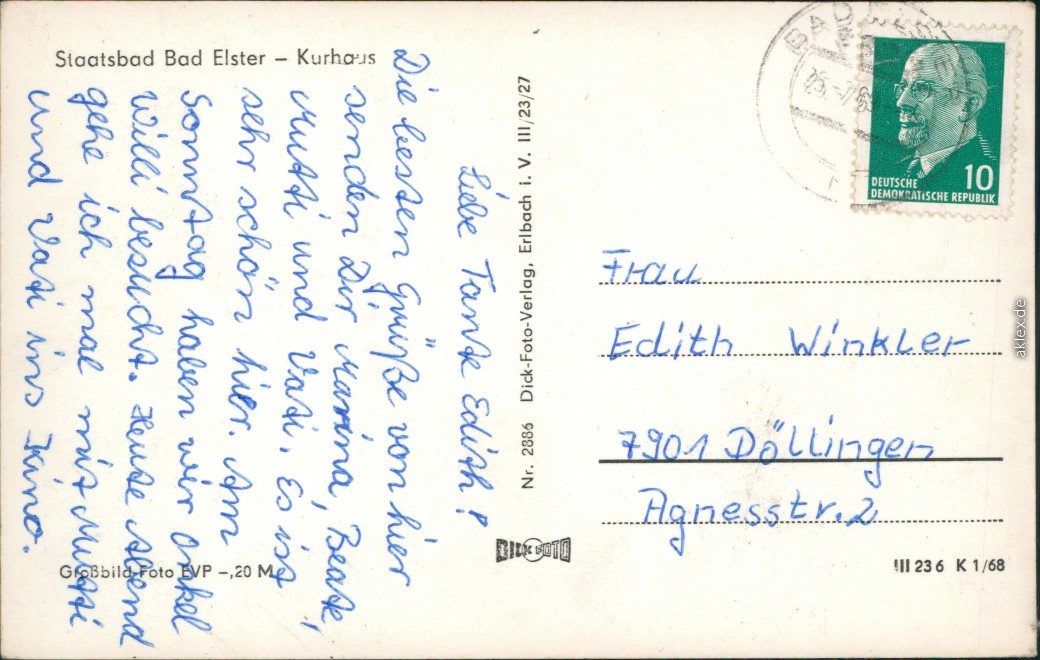 Staatsbad Bad Elster – Kurhaus
Liebe Tante Edith!
Die besten Grüße von hier
senden Dir Marina, Beate,
Mutti und Vati. Es ist
sehr schön hier. Am
Sonntag haben wir Onkel
Willi besucht. Heute Abend
gehe ich mal mit Mutti
und Vati ins Kino.
Großbild-Foto EVP –,20 M
Nr. 2886 Dick-Foto-Verlag, Erlbach i. V. III/23/27
DICK FOTO
BAD
DEUTSCHE
DEMOKRATISCHE REPUBLIK
10
Frau
Edith Winkler
7901 Döllingen
Agnesstr. 2
III 23 6 K 1/68
aklex.de